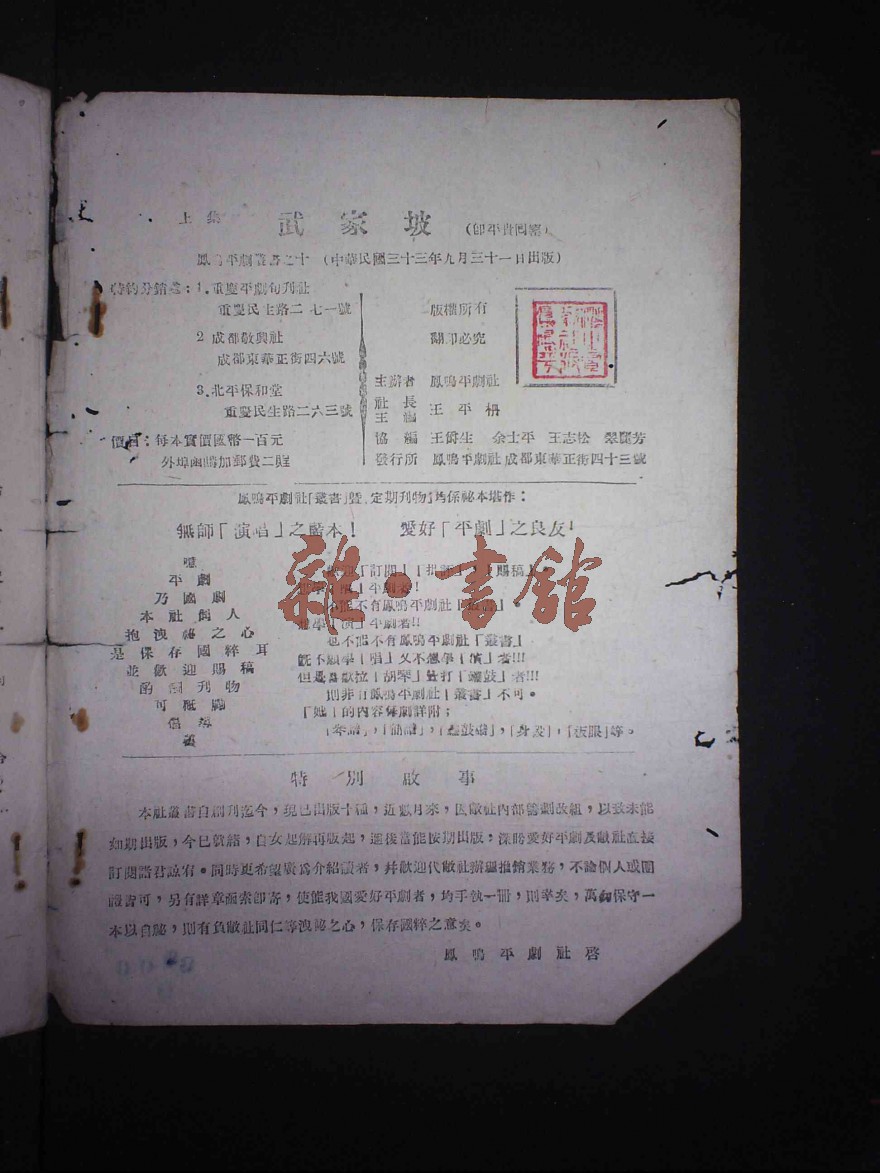 上集 武家坡 (即平貴回窰)
鳳鳴平劇叢書之十 (中華民國三十三年九月三十一日出版)
特約分銷處：1.重慶平劇旬刊社
重慶民生路二七一號
2 成都敬興社
成都東華正街四六號
3.北平保和堂
重慶民生路二六三號
價目：每本實價國幣一百元
外埠函購加郵費二成
版權所有
翻印必究
主辦者 鳳鳴平劇社
社長
主編 王平栩
協編 王爵生 余士平 王志松 翠麗芳
發行所 鳳鳴平劇社成都東華正街四十三號
鳳鳴平劇社「叢書」暨「定期刊物」均係祕本堪作：
無師「演唱」之藍本！ 愛好「平劇」之良友！
平劇
乃國劇
本社同人
抱洩祕之心
是保存國粹耳
並歡迎賜稿
刊物
可
倡導
歡迎「訂閱」「批評」，「賜稿」
不能不有鳳鳴平劇社「叢書」
想學「演」平劇者!!
也不能不有鳳鳴平劇社「叢書」
既不願學「唱」又不想學「演」者!!!
但還喜歡拉「胡琴」暨打「鑼鼓」者!!!
則非有鳳鳴平劇社「叢書」不可。
「她」的內容係劇詳附；
「琴譜」，「簡譜」，「鑼鼓譜」，「身段」，「板眼」等。
特別啟事
本社叢書自創刊迄今，現已出版十種，近數月來，因敝社內部籌劃改組，以致未能
如期出版，今已就緒，自女起解再版起，進後當能按期出版；深盼愛好平劇及敝社直接
訂閱諸君諒宥。同時更希望廣為介紹讀者，幷歡迎代敝社辦理推銷業務，不論個人或團
體皆可，另有詳章函索即寄，使能我國愛好平劇者，均手執一冊，則幸矣，萬勿保守一
本以自祕，則有負敝社同仁等洩祕之心，保存國粹之意矣。
鳳鳴平劇社啓
雜·書館